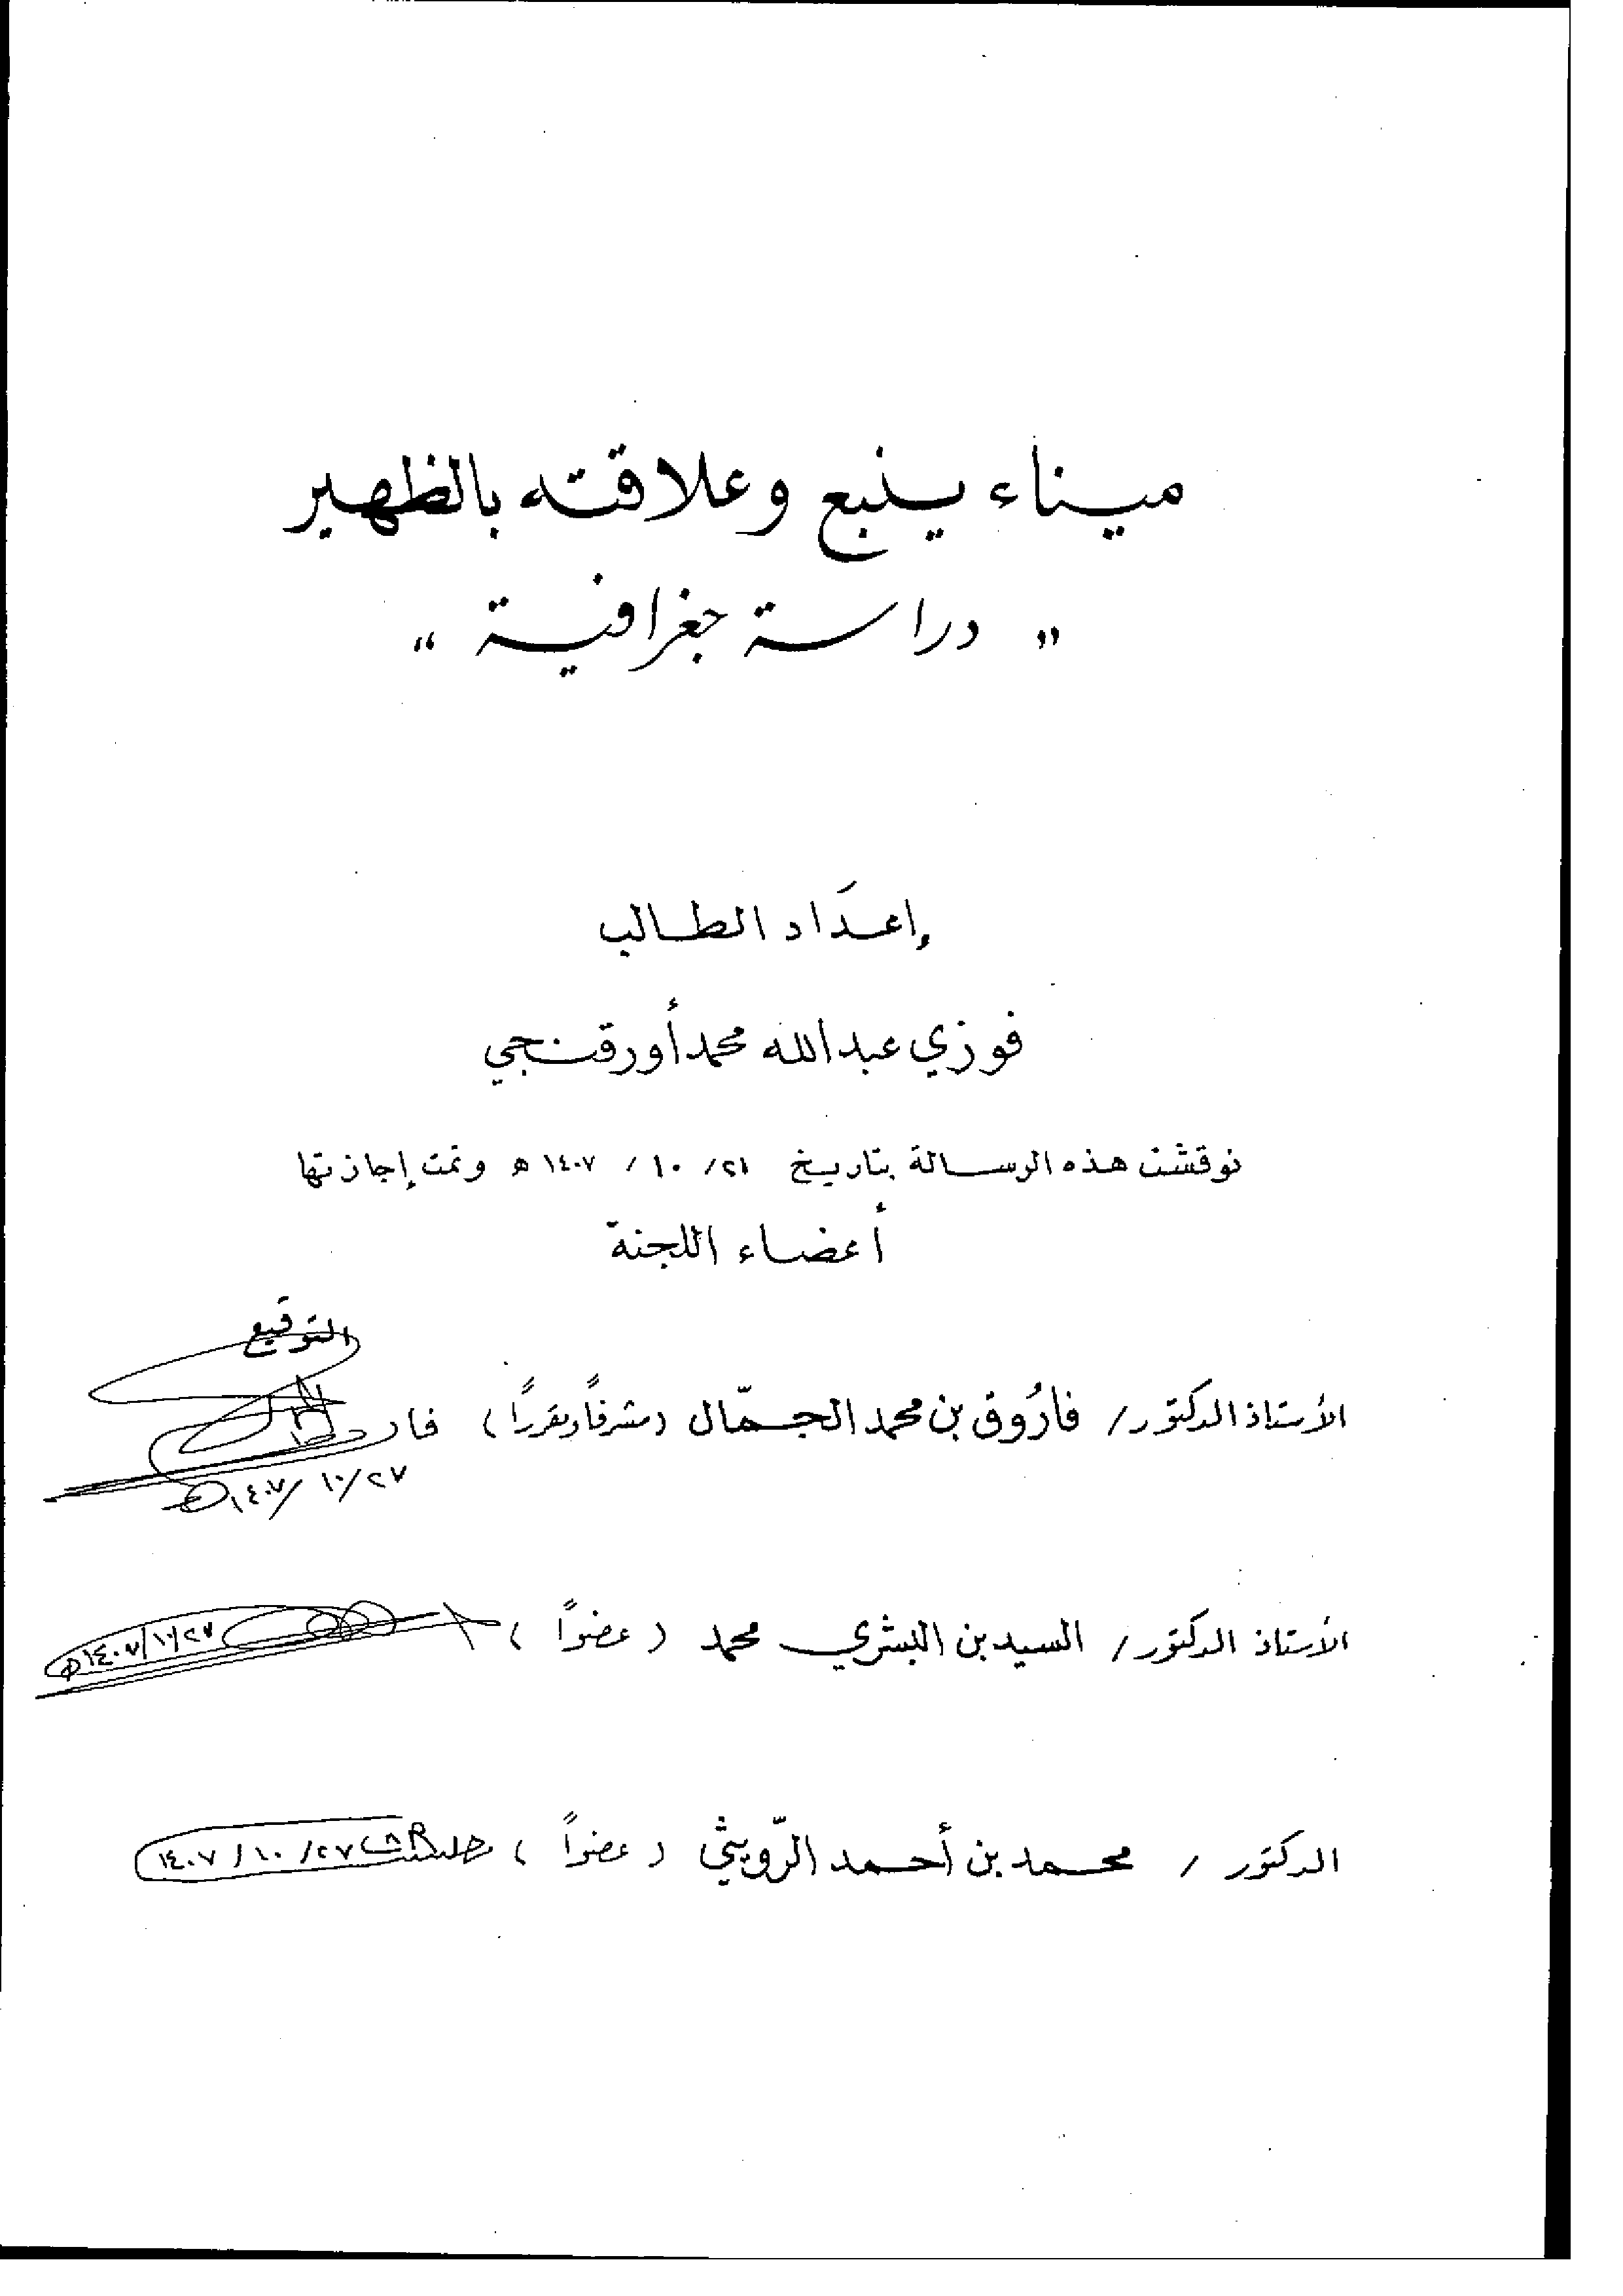 ميناء ينبع وعلاقته بالظهير
" دراسة جغرافية "
إعداد الطالب
فوزي عبدالله محمد أورقنجي
نوقشت هذه الرسالة بتاريخ ٢١/ ١٠ / ١٤٠٧ ه وتمت إجازتها
أعضاء اللجنة
التوقيع
الأستاذ الدكتور/ فارُوق بن محمد الجمّال (مشرفاً ومقرراً)
٢٧/ ١٠/ ١٤٠٧ه
الأستاذ الدكتور/ السيد بن البشري محمد (عضواً) ٢٧/ ١٠/ ١٤٠٧ه
الدكتور / محمد بن أحمد الرّويثي (عضواً) ٢٧/ ١٠/ ١٤٠٧